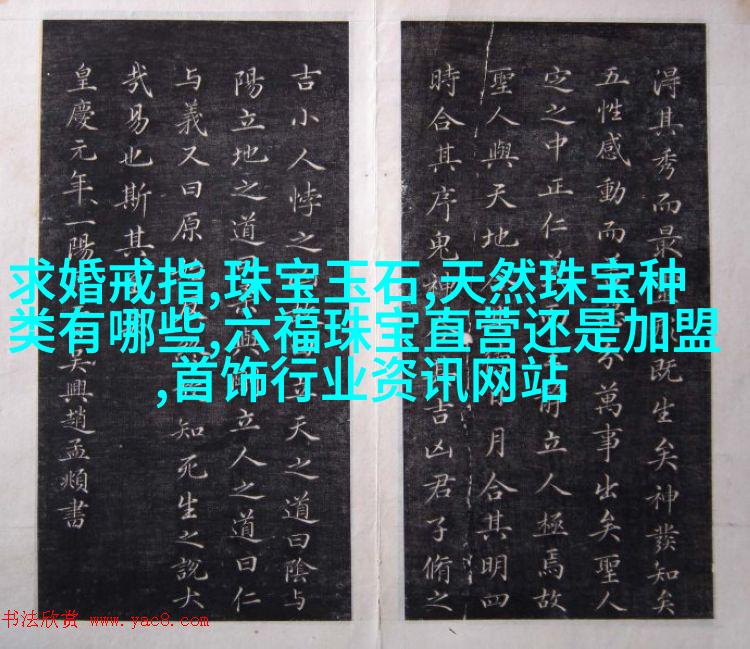 得其秀而最既生矣神發知矣
五性感動而分萬事出矣聖人
定之中正仁立人極焉故
聖人與天地月合其明四
時合其序鬼神吉凶君子脩之
吉小人悖之立天之道曰陰与
陽立地之道與立人之道曰仁
与義又曰原知死生之說大
哉易也斯其
皇慶元年一陽吴興趙孟頫書
求婚戒指,珠宝玉石,天然珠宝种
类有哪些,六福珠宝直营还是加盟
,首饰行业资讯网站
书法欣赏 www.yac8.com